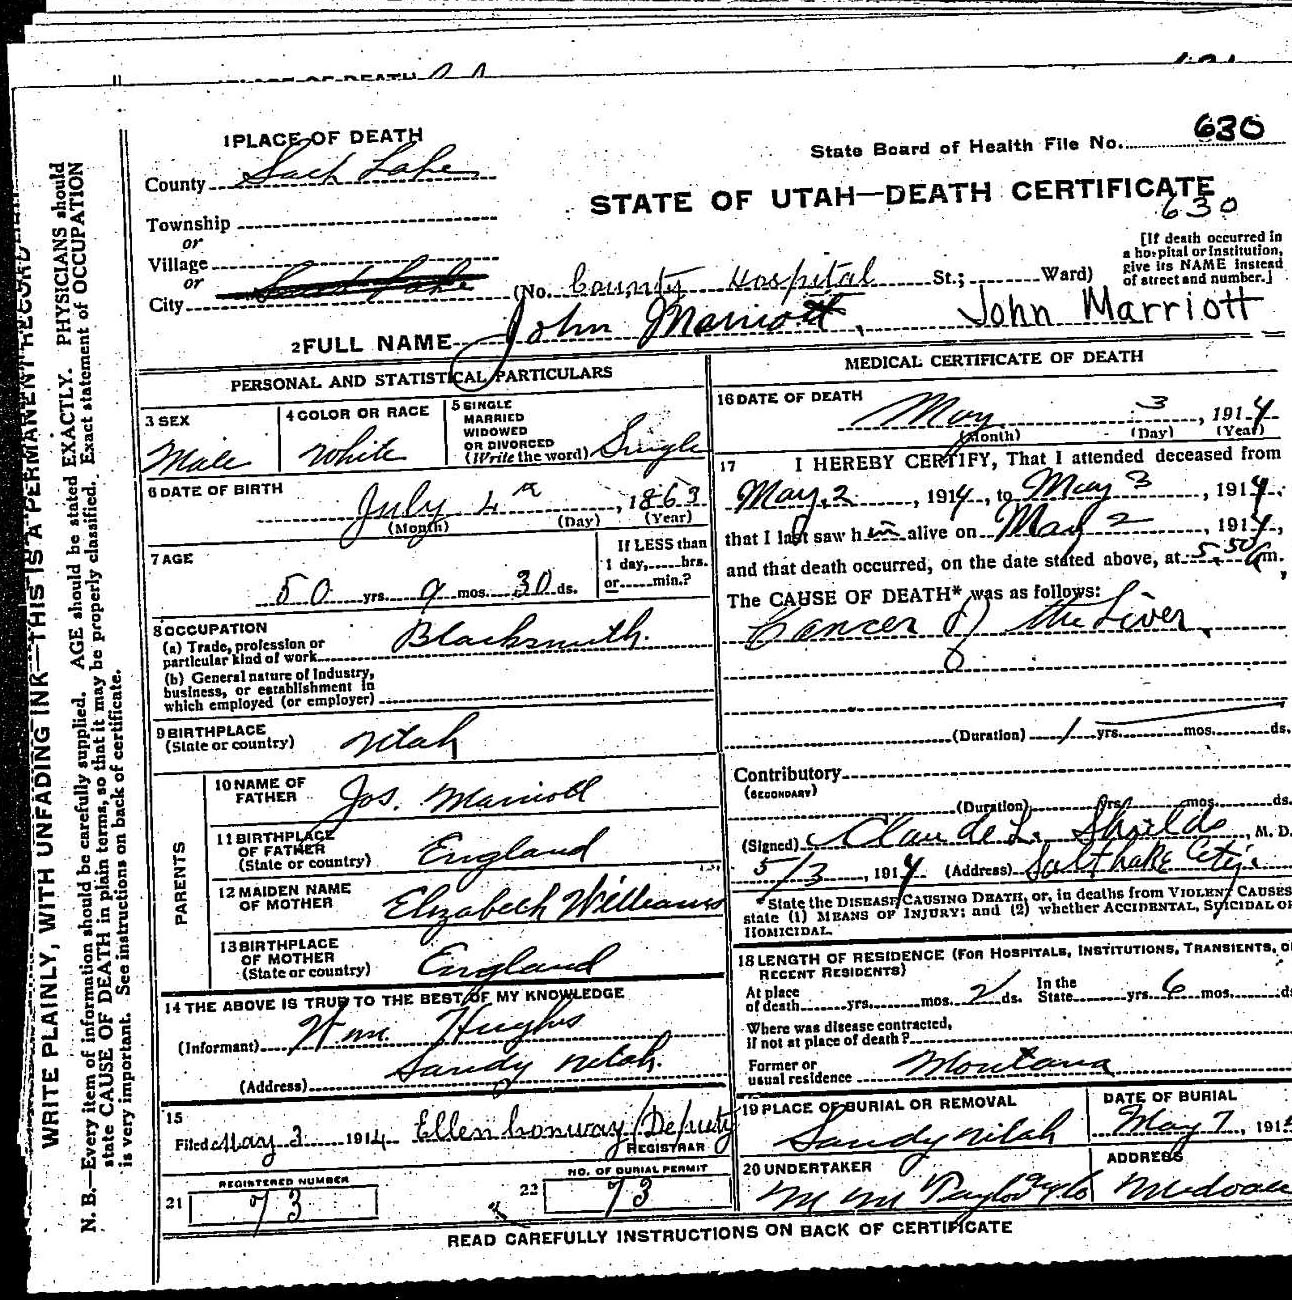 State Board of Health File No. 630
1 PLACE OF DEATH
County Sach Lake
STATE OF UTAH—DEATH CERTIFICATE
630
Township
or
Village
or
City
(No. County Hospital St.; Ward)
[If death occurred in
a hospital or institution,
give its NAME instead
of street and number.]
2 FULL NAME John Marriott, John Marriott
PERSONAL AND STATISTICAL PARTICULARS
3 SEX
Male
4 COLOR OR RACE
White
5 SINGLE
MARRIED
WIDOWED
OR DIVORCED
(Write the word) Single
6 DATE OF BIRTH
July 4th, 1863
(Month) (Day) (Year)
7 AGE
50 yrs. 9 mos. 30 ds.
If LESS than
1 day, hrs.
or min.?
8 OCCUPATION
(a) Trade, profession or
particular kind of work Blacksmith.
(b) General nature of Industry,
business, or establishment in
which employed (or employer)
9 BIRTHPLACE
(State or country) Utah
PARENTS
10 NAME OF
FATHER Jos. Marriott
11 BIRTHPLACE
OF FATHER
(State or country) England
12 MAIDEN NAME
OF MOTHER Elizabeth Williams
13 BIRTHPLACE
OF MOTHER
(State or country) England
14 THE ABOVE IS TRUE TO THE BEST OF MY KNOWLEDGE
(Informant) Wm. Hughes
(Address) Sandy Utah.
15
Filed May 3 1914 Ellen Conway/Deputy
REGISTRAR
21 REGISTERED NUMBER
73
22 NO. OF BURIAL PERMIT
73
MEDICAL CERTIFICATE OF DEATH
16 DATE OF DEATH
May 3, 1914
(Month) (Day) (Year)
17 I HEREBY CERTIFY, That I attended deceased from
May 2, 1914, to May 3, 1914,
that I last saw him alive on May 2, 1914,
and that death occurred, on the date stated above, at 5.50 a m.
The CAUSE OF DEATH* was as follows:
Cancer of the Liver.
(Duration) 1 yrs. mos. ds.
Contributory
(SECONDARY)
(Duration) yrs. mos. ds.
(Signed) Claude L. Shields, M. D.
5/3, 1914 (Address) Salt Lake City.
*State the DISEASE CAUSING DEATH, or, in deaths from VIOLENT CAUSES
state (1) MEANS OF INJURY; and (2) whether ACCIDENTAL, SUICIDAL OR
HOMICIDAL.
18 LENGTH OF RESIDENCE (FOR HOSPITALS, INSTITUTIONS, TRANSIENTS, OR
RECENT RESIDENTS)
At place
of death yrs. mos. 2 ds. In the
State yrs. 6 mos. ds
Where was disease contracted,
if not at place of death?
Former or
usual residence Montana
19 PLACE OF BURIAL OR REMOVAL
Sandy Utah
DATE OF BURIAL
May 7, 191
20 UNDERTAKER
ADDRESS
READ CAREFULLY INSTRUCTIONS ON BACK OF CERTIFICATE
WRITE PLAINLY, WITH UNFADING INK—THIS IS A PERMANENT RECORD
N. B.—Every item of information should be carefully supplied. AGE should be stated EXACTLY. PHYSICIANS should
state CAUSE OF DEATH in plain terms, so that it may be properly classified. Exact statement of OCCUPATION
is very important. See instructions on back of certificate.